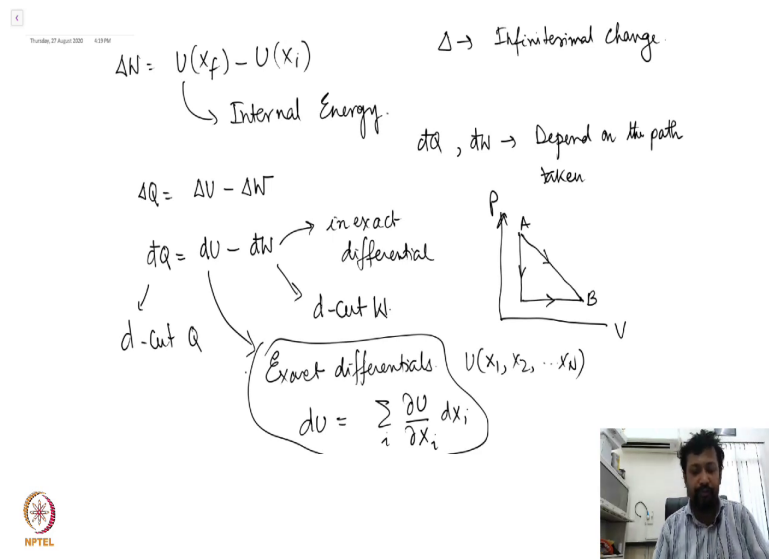 Thursday, 27 August 2020 4:19 PM
ΔW = U(x_f) − U(x_i)
Internal Energy.
Δ → Infinitesimal change.
đQ, đW → Depend on the path
taken
ΔQ = ΔU − ΔW
đQ = dU − đW
inexact
differential
d-cut W.
d-cut Q
P
A
B
V
Exact differentials.
U(x₁, x₂, ⋯ x_N)
dU = Σ_i ∂U/∂x_i dx_i
NPTEL